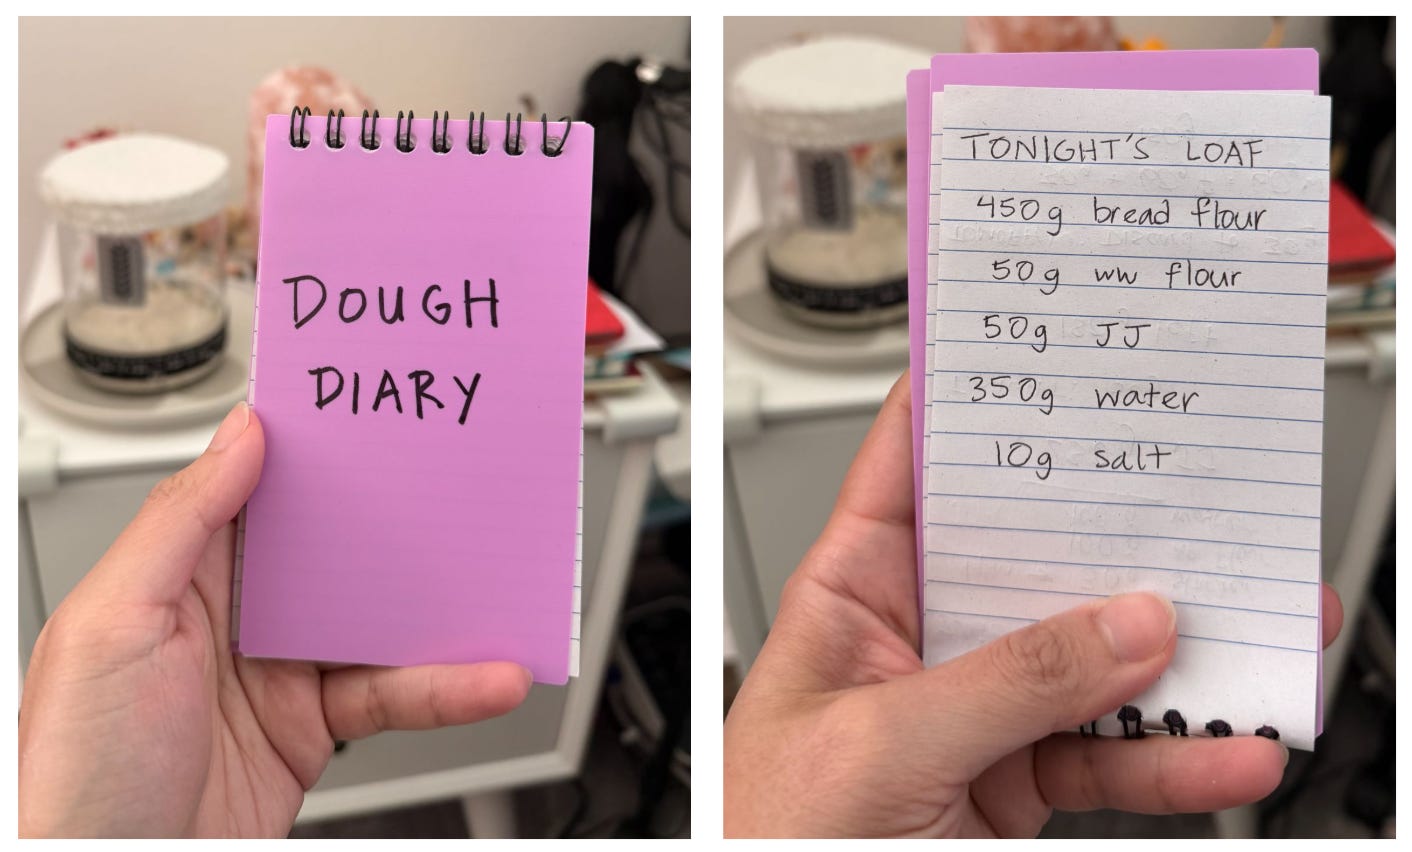 DOUGH
DIARY
TONIGHT'S LOAF
450g bread flour
50g ww flour
50g JJ
350g water
10g salt